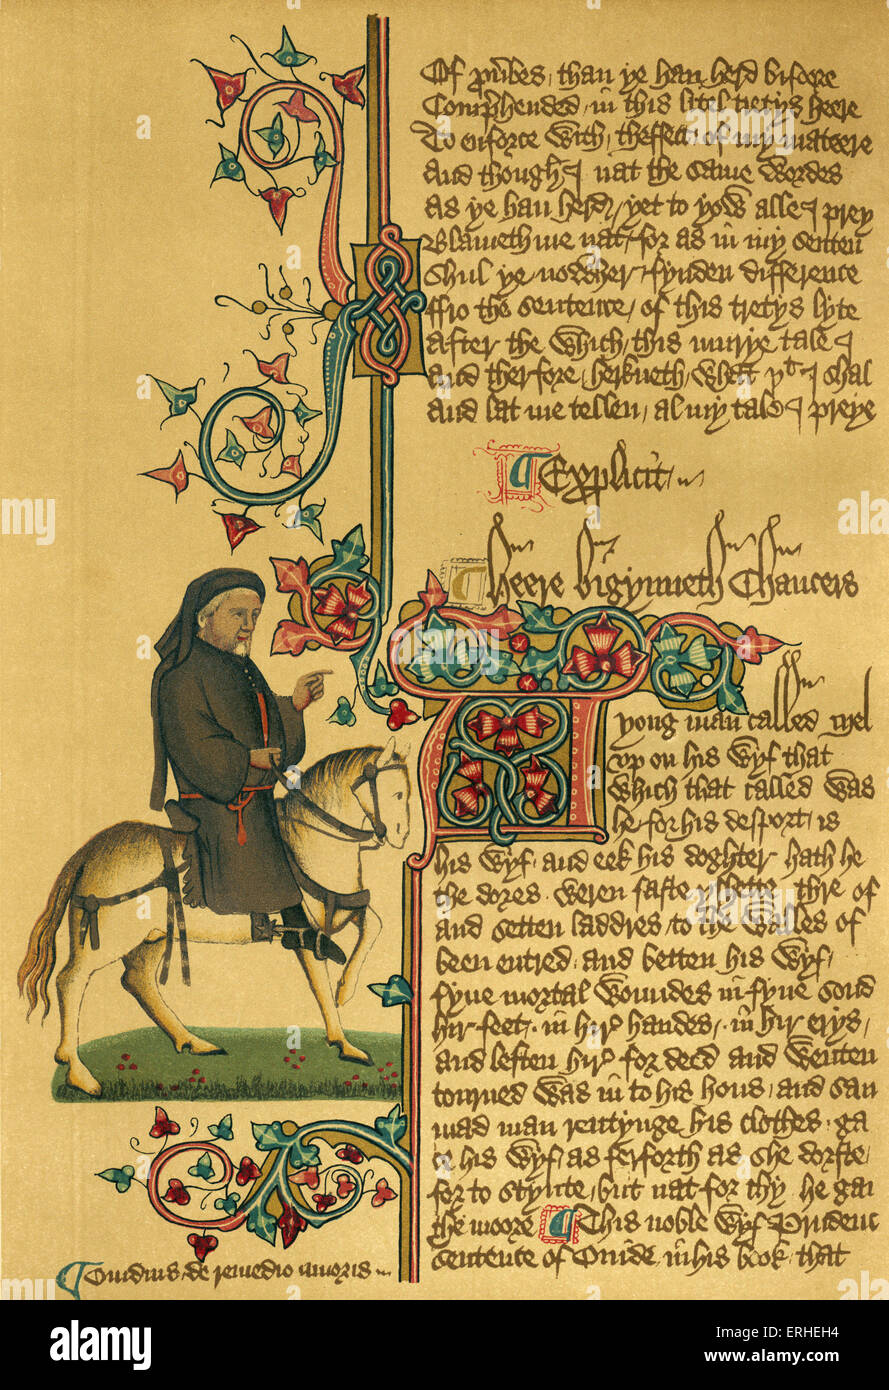 Of prouˀbes, than ye han herd bifore
Comprehended, in this litel tretys heere
To enforce with, theffect, of my mateere
And though I nat the same wordes
as ye han herd, yet to yow alle I prey
Blameth me nat, for as in my senten
Shul ye nowher, fynden difference
ffro the sentence, of this tretys lyte
after the which, this murye tale I
And therfore, herkneth, what yt I shal
And lat me tellen, al my tale I preye
Explicit
Heere bigynneth Chaucers
A yong man called Mel
up on his wyf that
which that called was
he for his desport, is
his wyf, and eek his doghter hath he
the dores weren faste yshette thre of
and setten laddres, to the walles of
been entred, and betten his wyf,
fyue mortal woundes in fyue sond
hir feet, in hir handes, in hir erys,
and leften hir for deed and wenten
torned was in to his hous, and sau
mad man rentynge his clothes, ga
his wyf, as ferforth as she dorste,
for to stynte, but nat for thy he gan
the moore This noble wyf Prudenc
sentence of Ouide, in his book, that
Ouidius, de remedio amoris
alamy
Image ID: ERHEH4
www.alamy.com